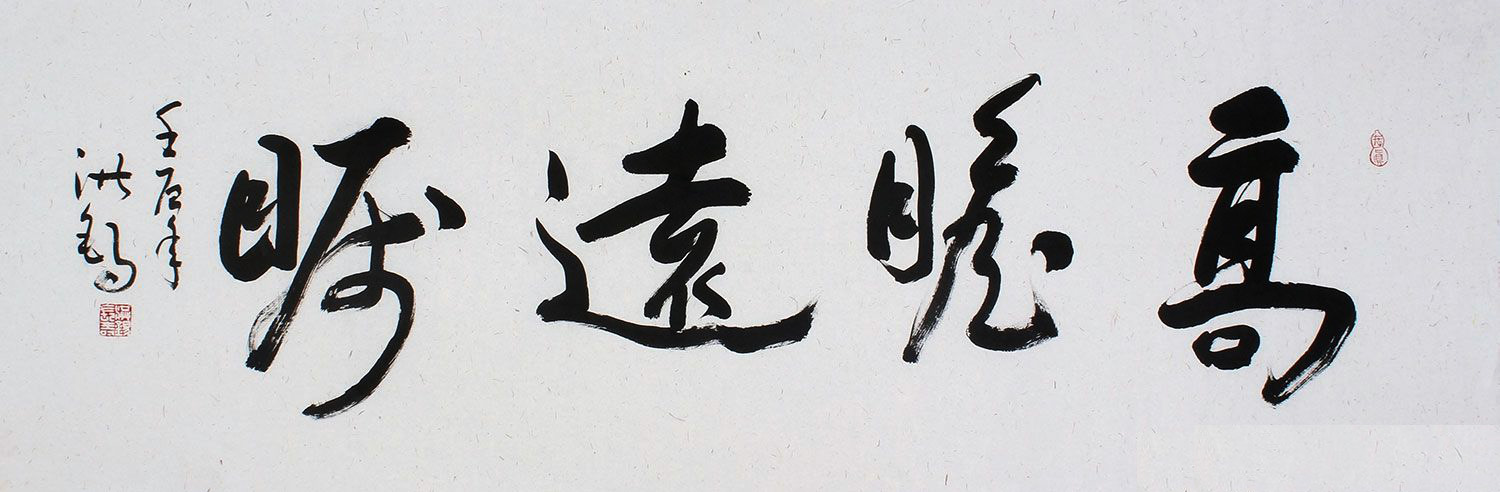 高瞻遠矚
壬辰年
洪